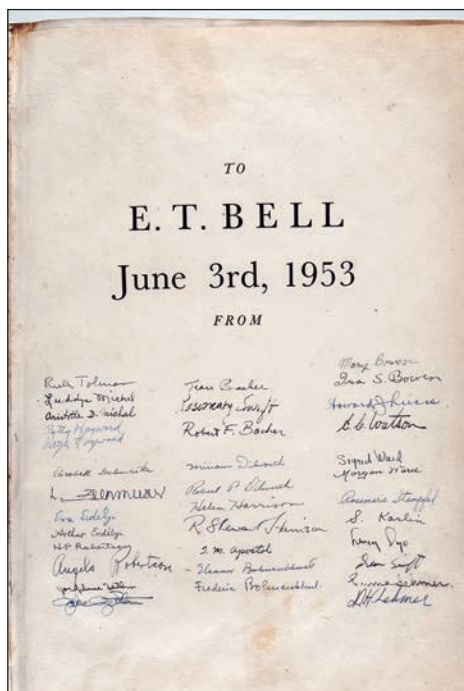 TO
E. T. BELL
June 3rd, 1953
FROM
Ruth Tolman
Luddye Michal
Aristotle D. Michal
Betty Hayward
Roger Hayward
Eva Erdélyi
Arthur Erdélyi
H.P. Robertson
Angela Robertson
Jean Bacher
Rosemary Swift
Robert F. Bacher
Miriam Dilworth
Robert P. Dilworth
Helen Harrison
R Stewart Harrison
T. M. Apostol
Eleanor Bohnenblust
Frederic Bohnenblust
Mary Bowen
Ira S. Bowen
E. C. Watson
Sigrid Ward
Morgan Ward
S. Karlin
Dean Swift
Emma Lehmer
D H Lehmer